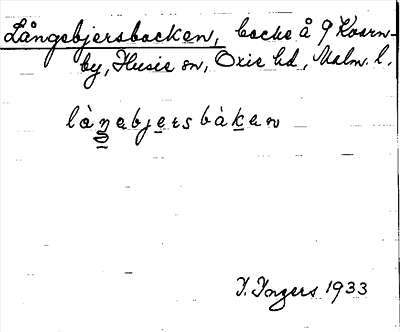 Långebjersbacken, backe å 9 Kvarn-
by, Husie sn, Oxie hd, Malm. l.
làŋabjersbàkan
I. Ingers 1933